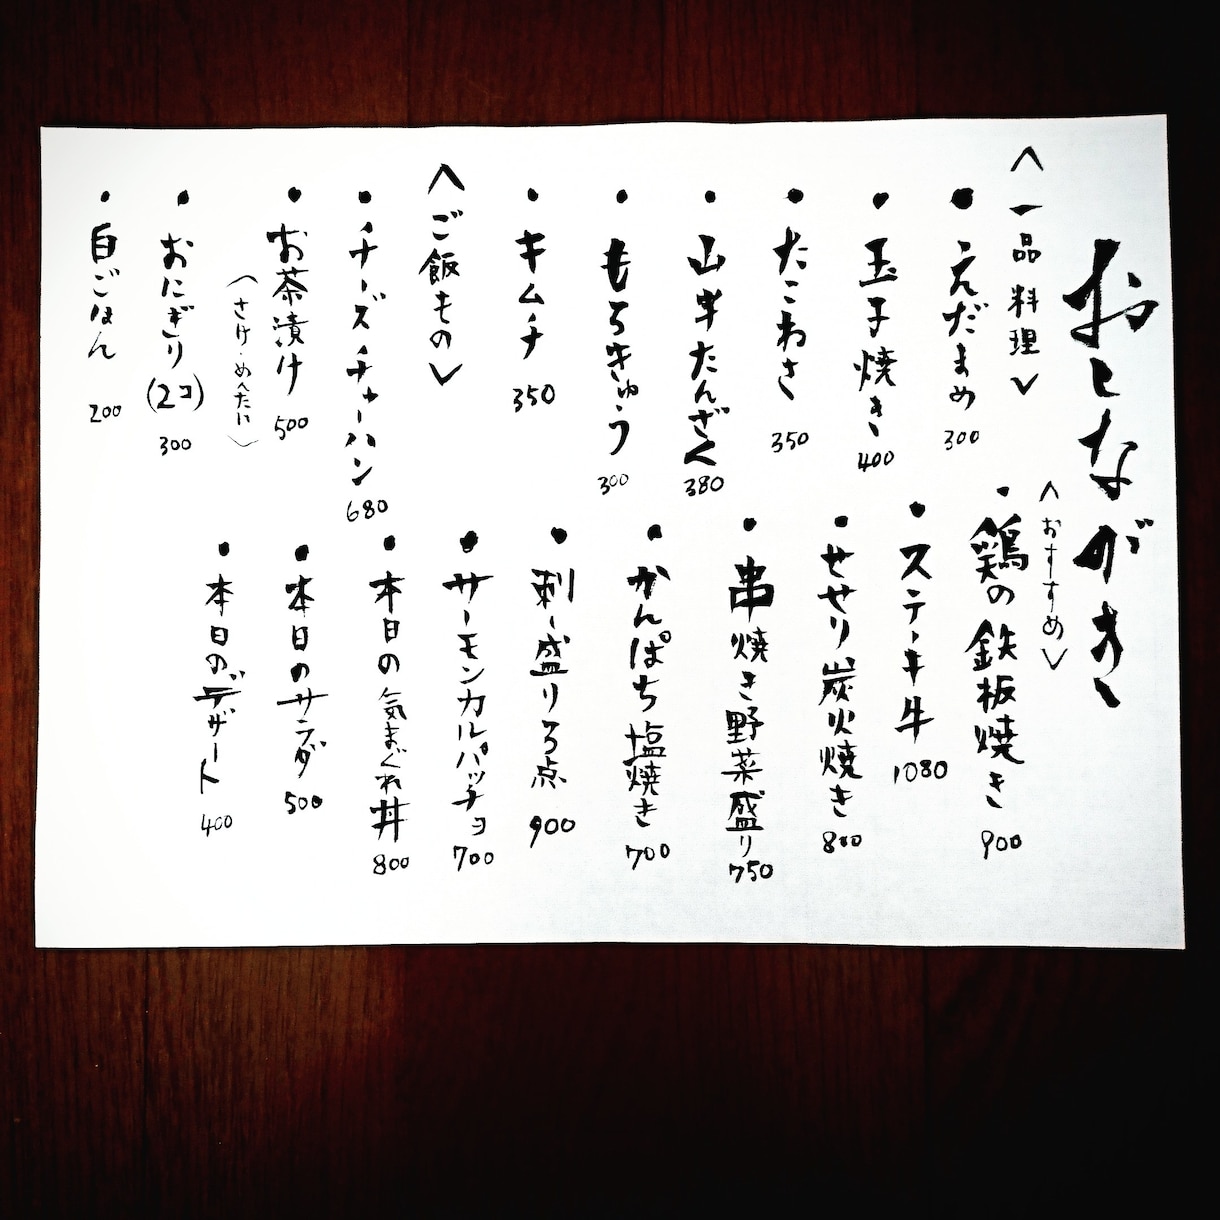 おとながき
〈一品料理〉
・えだまめ
300
・玉子焼き
400
・たこわさ
350
・山芋たんざく
380
・もろきゅう
300
・キムチ
350
〈ご飯もの〉
・チーズチャーハン
680
・お茶漬け
500
(さけ・めんたい)
・おにぎり(2コ)
300
・白ごはん
200
〈おすすめ〉
・鶏の鉄板焼き
900
・ステーキ牛
1080
・せせり炭火焼き
800
・串焼き野菜盛り
750
・かんぱち塩焼き
700
・刺し盛り3点
900
・サーモンカルパッチョ
700
・本日の気まぐれ丼
800
・本日のサラダ
500
・本日のデザート
400